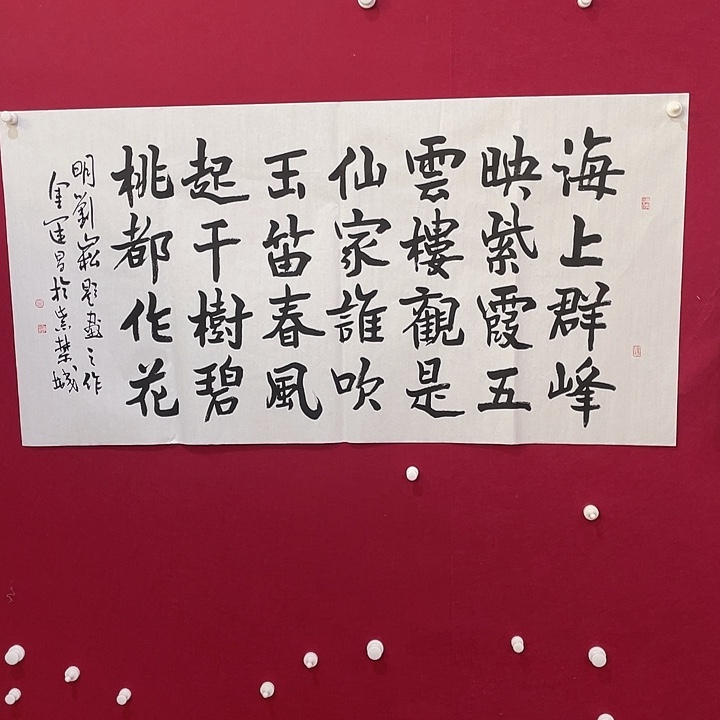 海上群峰
映紫霞五
雲樓觀是
仙家誰吹
玉笛春風
起千樹碧
桃都作花
明劉崧題畫之作
軍運昌於紫禁城